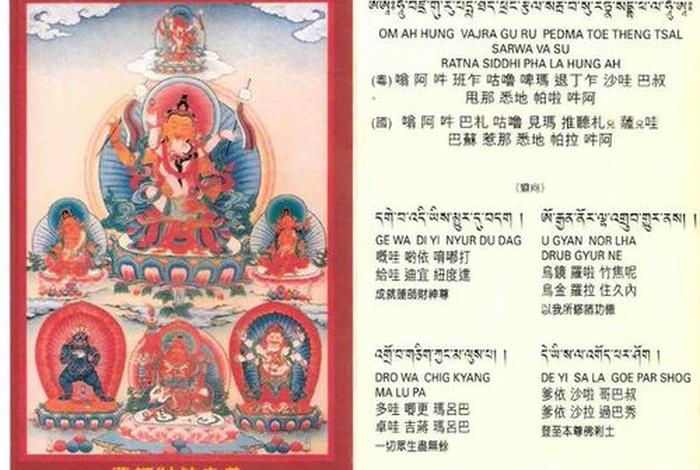 OM AH HUNG VAJRA GU RU PEDMA TOE THENG TSAL
SARWA VA SU
RATNA SIDDHI PHA LA HUNG AH
(粵) 嗡 阿 吽 班乍 咕嚕 啤瑪 退丁乍 沙哇 巴叔
甩那 悉地 帕啦 吽阿
(國) 嗡 阿 吽 巴札 咕嚕 見瑪 推聽札兌 薩兌哇
巴蘇 惹那 悉地 帕拉 吽阿
(迴向)
དགེ་བ་འདི་ཡིས་མྱུར་དུ་བདག །
GE WA DI YI NYUR DU DAG
嘅哇 啲依 唷嘟打
給哇 迪宜 紐度達
成就蓮師財神尊
ཨོ་རྒྱན་ནོར་ལྷ་འགྲུབ་གྱུར་ནས། །
U GYAN NOR LHA
DRUB GYUR NE
烏鏡 羅啦 竹焦呢
烏金 羅拉 住久內
以我所修諸功德
འགྲོ་བ་གཅིག་ཀྱང་མ་ལུས་པ། །
DRO WA CHIG KYANG
MA LU PA
多哇 唧更 瑪呂巴
卓哇 吉蔣 瑪呂巴
一切眾生盡無餘
དེ་ཡི་ས་ལ་འགོད་པར་ཤོག །
DE YI SA LA GOE PAR SHOG
爹依 沙啦 哥巴叔
爹依 沙拉 過巴秀
登至本尊佛剎土